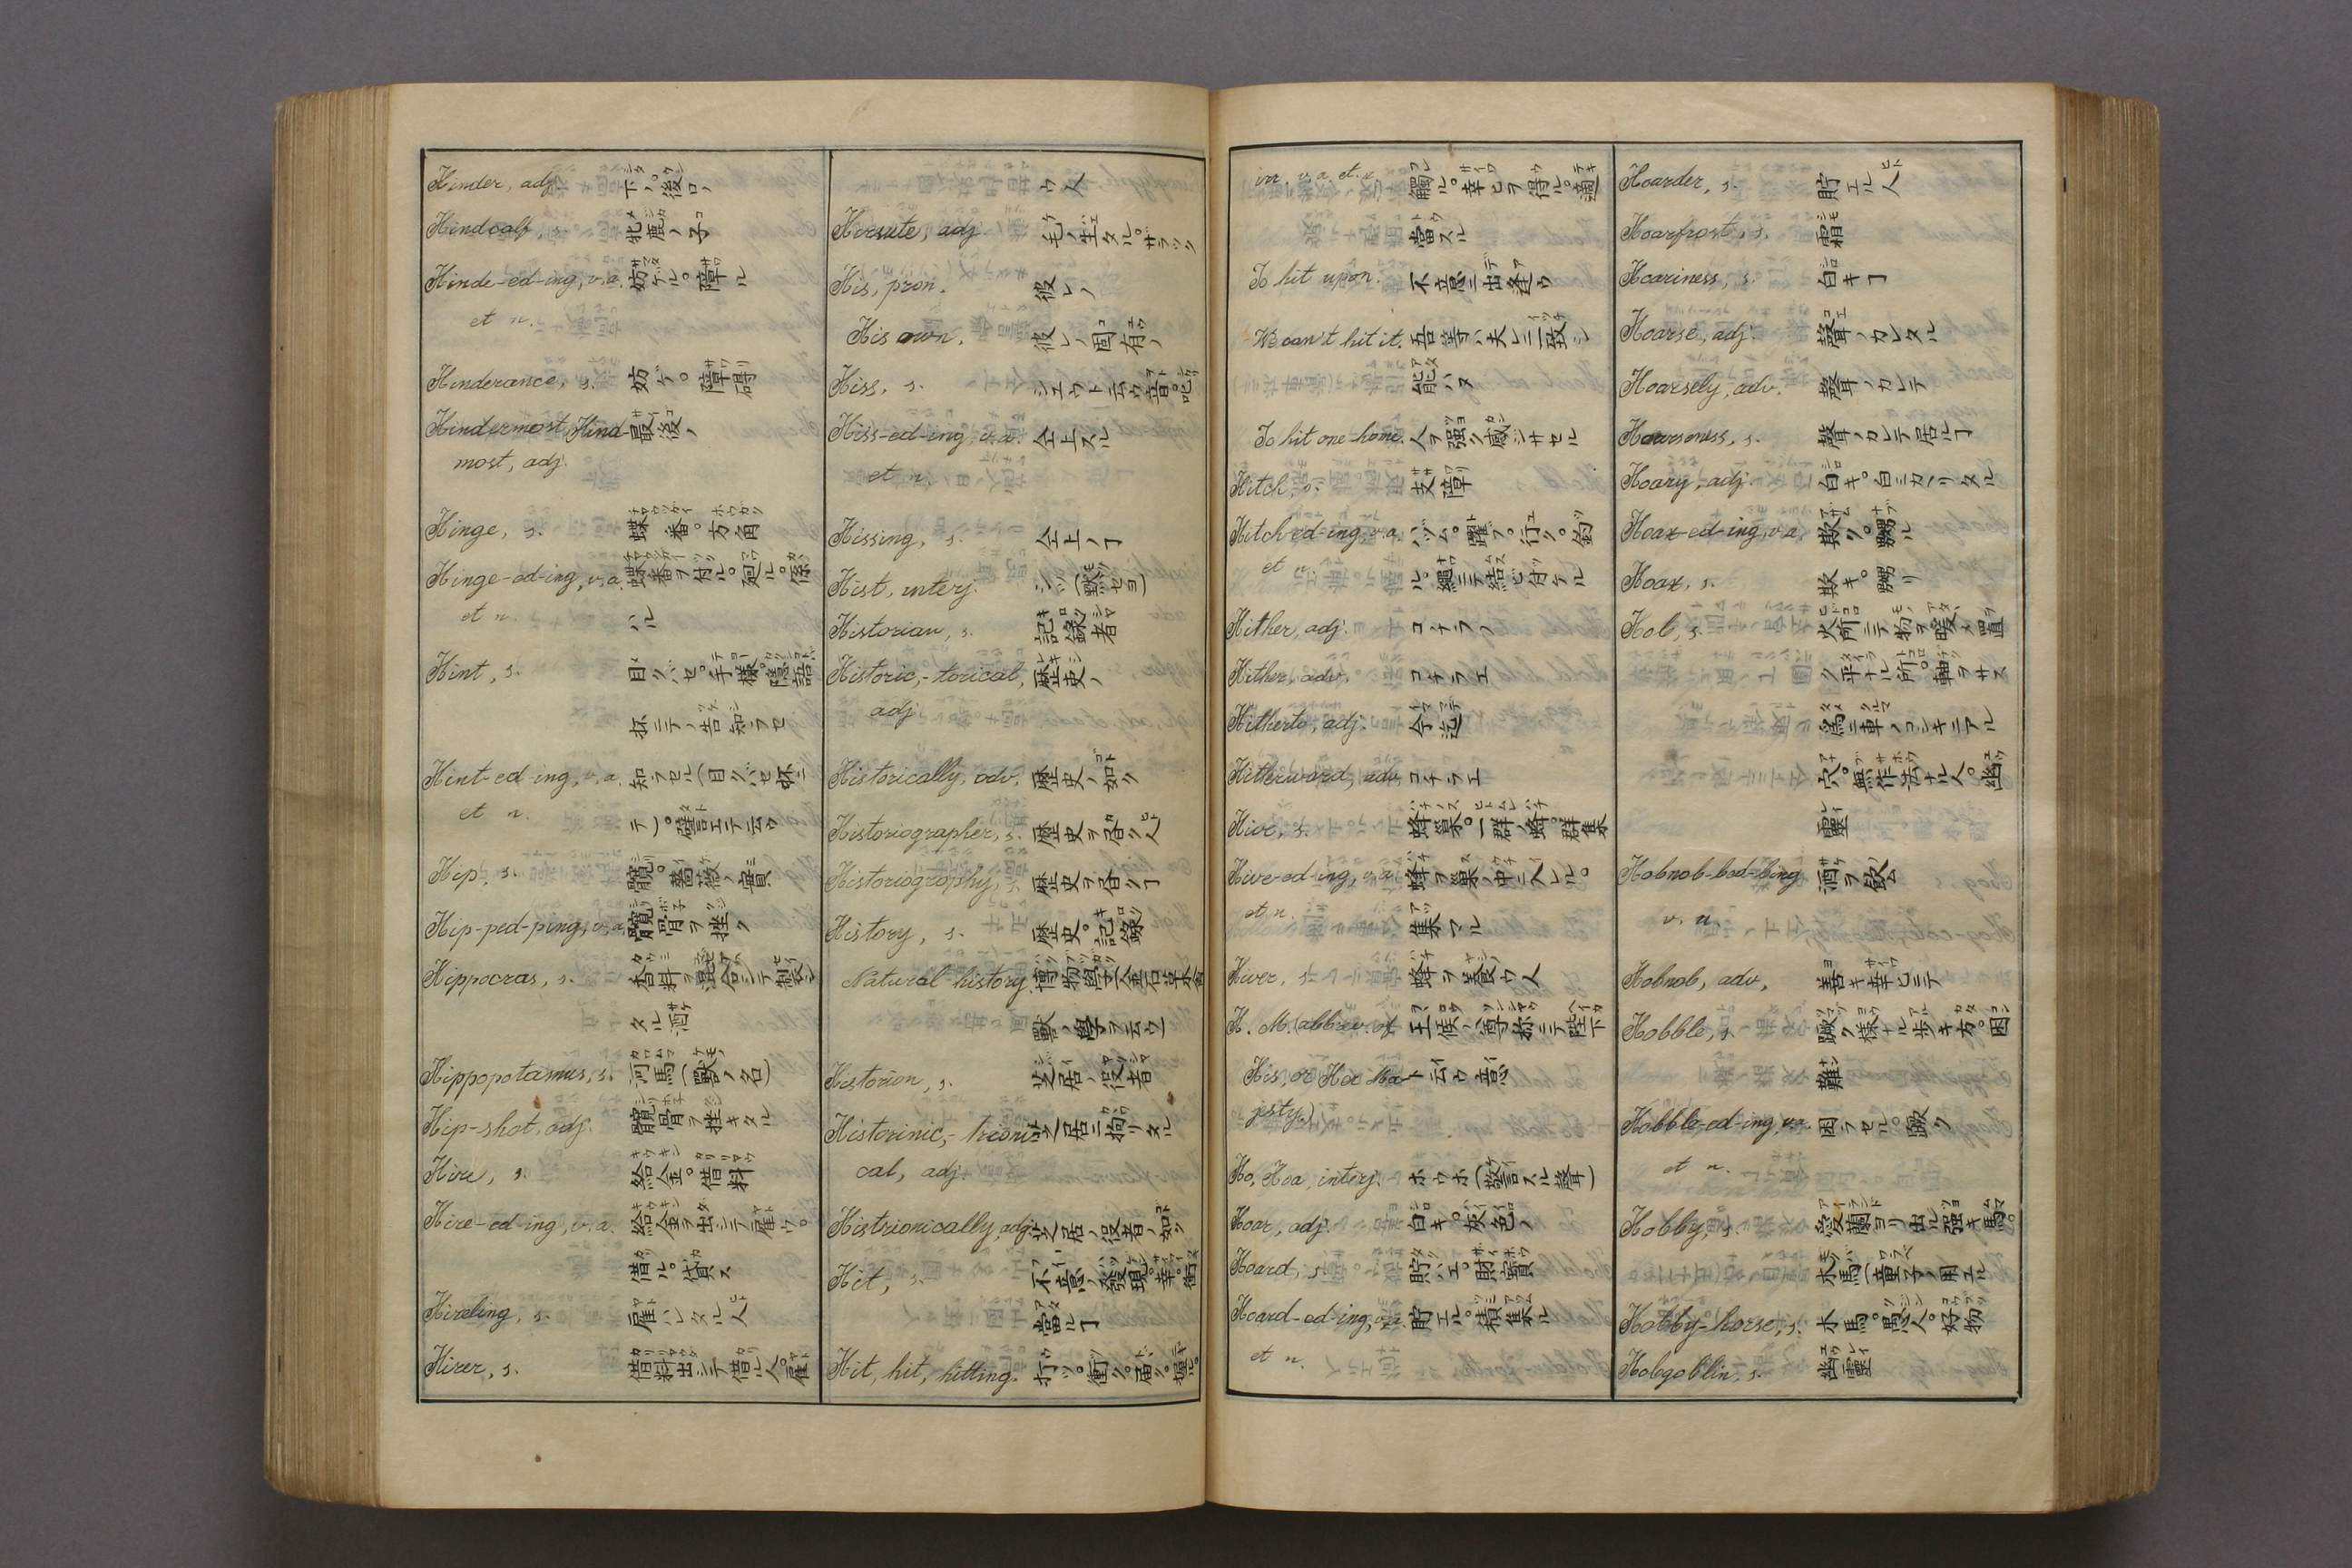 Hinder, adj. 下ノ。後ロノ
Hindcalf, s. 牝鹿ノ子
Hinde-ed-ing, v.a. 妨ケル。障ル
et n.
Hinderance, s. 妨ゲ。障碍
Hindermost, Hind- 最後ノ
most, adj.
Hinge, s. 蝶番。方角
Hinge-ed-ing, v.a. 蝶番ヲ付ル。廻ル。係
et n. ハル
Hint, s. 目クバセ。手様。隠語
杯ニテノ告知ラセ
Hint-ed-ing, v.a. 知ラセル(目クバセ杯ニ
et n. テ)。譬エテ云ウ
Hip, s. 髖。薔薇ノ實
Hip-ped-ping, v.a. 髖骨ヲ挫ク
Hippocras, s. 香料ヲ混合シテ製シ
タル酒
Hippopotamus, s. 河馬(獸ノ名)
Hip-shot, adj. 髖骨ヲ挫キタル
Hire, s. 給金。借料
Hire-ed-ing, v.a. 給金ヲ出シテ雇ウ。
借ル。貸ス
Hireling, s. 雇ハレタル人
Hirer, s. 借料出シテ借ル人。雇
ウ人
Hirsute, adj. 毛ノ生タル。ザラツク
His, pron. 彼レノ
His own. 彼レノ固有ノ
Hiss, s. シュウト云ウ音。叱
Hiss-ed-ing, v.a. 仝上スル
et n.
Hissing, s. 仝上ノヿ
Hist, interj. シッ(黙セヨ)
Historian, s. 記録者
Historic,-torical, 歴史ノ
adj.
Historically, adv. 歴史ノ如ク
Historiographer, s. 歴史ヲ書ク人
Historiography, 歴史ヲ書クヿ
History, s. 歴史。記録
Natural history. 博物學 金石草木禽
獸ノ學ヲ云ウ
Historion, s. 芝居ノ役者
Historinic,-trioni- 芝居ニ拘リタル
cal, adj.
Histrionically, adj. 芝居ノ役者ノ如ク
Hit, s. 不意ノ發現。幸。衝
當ルヿ
Hit, hit, hitting. 打ツ。衝ク。届ク。
irr. v.a. et n. 觸ル。幸ヒヲ得ル。適
當スル
To hit upon. 不意ニ出逢ウ
We can't hit it. 吾等ハ夫レニ一致シ
能ハヌ
To hit one home. 人ヲ強ク感ジサセル
Hitch, s. 支障
Hitch-ed-ing, v.a. ハヅム。躍ブ。行ク。釣
et n. ル。繩ニテ結ビ付ケル
Hither, adj. コチラノ
Hither, adv. コチラエ
Hitherto, adj. 今迄
Hitherward, adv. コチラエ
Hive, s. 蜂巢。一群ノ蜂。群集
Hive-ed-ing, v.a. 蜂ヲ巢ノ中ニ入レル。
et n. 集マル
Hiver, s. 蜂ヲ養ウ人
H. M. (abbrev. of 王候ノ尊称ニテ陛下
His, or Her Ma- ト云ウ意
jesty.)
Ho, Hoa, interj. ホウホ(警言スル聲)
Hoar, adj. 白キ。灰色ノ
Hoard, s. 貯ハエ。財寶
Hoard-ed-ing, v.a. 貯エル。積集ル
et n.
Hoarder, s. 貯エル人
Hoarfrost, s. 霜
Hoariness, s. 白キヿ
Hoarse, adj. 聲ノカレタル
Hoarsely, adv. 聲ノカレテ
Hoarseness, s. 聲ノカレテ居ルヿ
Hoary, adj. 白キ。白ミカヽリタル
Hoax-ed-ing, v.a. 欺ク。嬲ル
Hoax, s. 欺キ。嬲リ
Hob, s. 火所ニテ物ヲ暖メ置
ク平ナル所。軸ヲサス
爲ニ車ノコシキニアル
穴。無作法ナル人。幽
靈
Hobnob-bed-bing 酒ヲ飲ム
v. n.
Hobnob, adv. 善キ幸ヒニテ
Hobble, s. 蹶ク様ナル歩キ方。困
難
Hobble-ed-ing, v.a. 困ラセル。蹶ク
et n.
Hobby, s. 愛蘭ヨリ出ル強キ馬。
木馬(童子ノ用エル
Hobby-horse, s. 木馬。愚人。好物
Hobgoblin, s. 幽靈